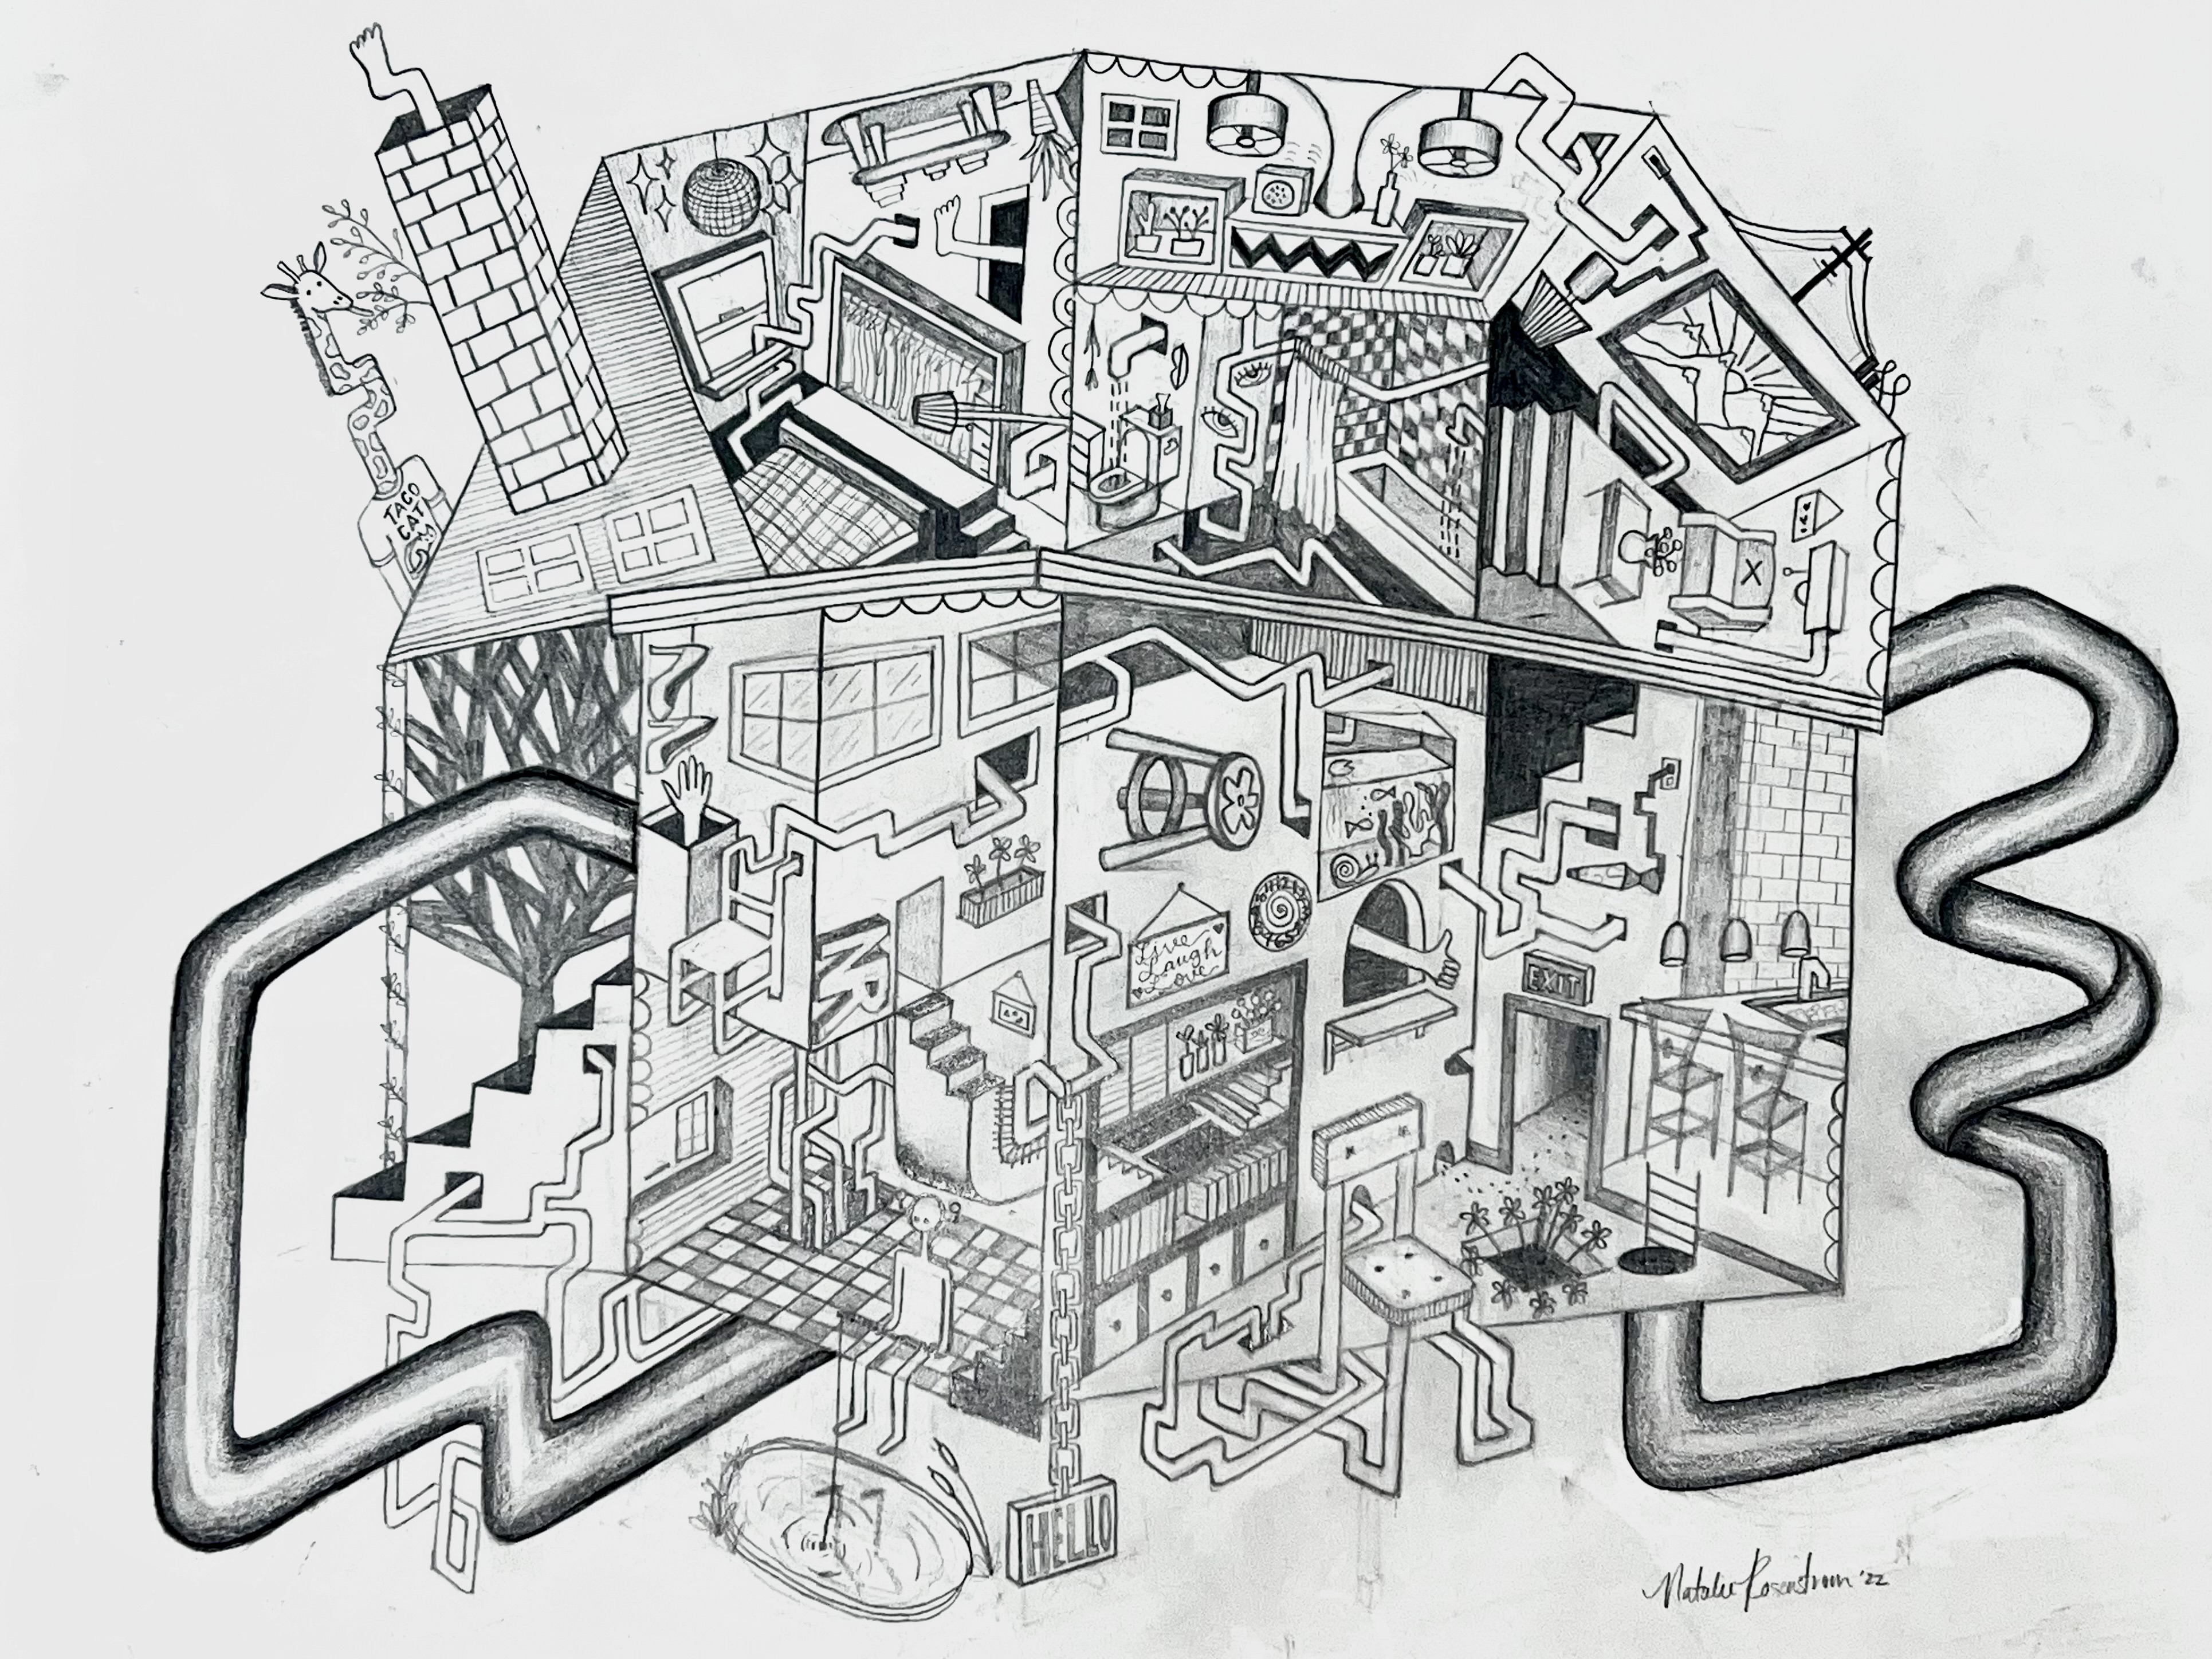 TACO
CAT
Live
Laugh
Love
EXIT
HELLO
Natalie Rosenstrom '22